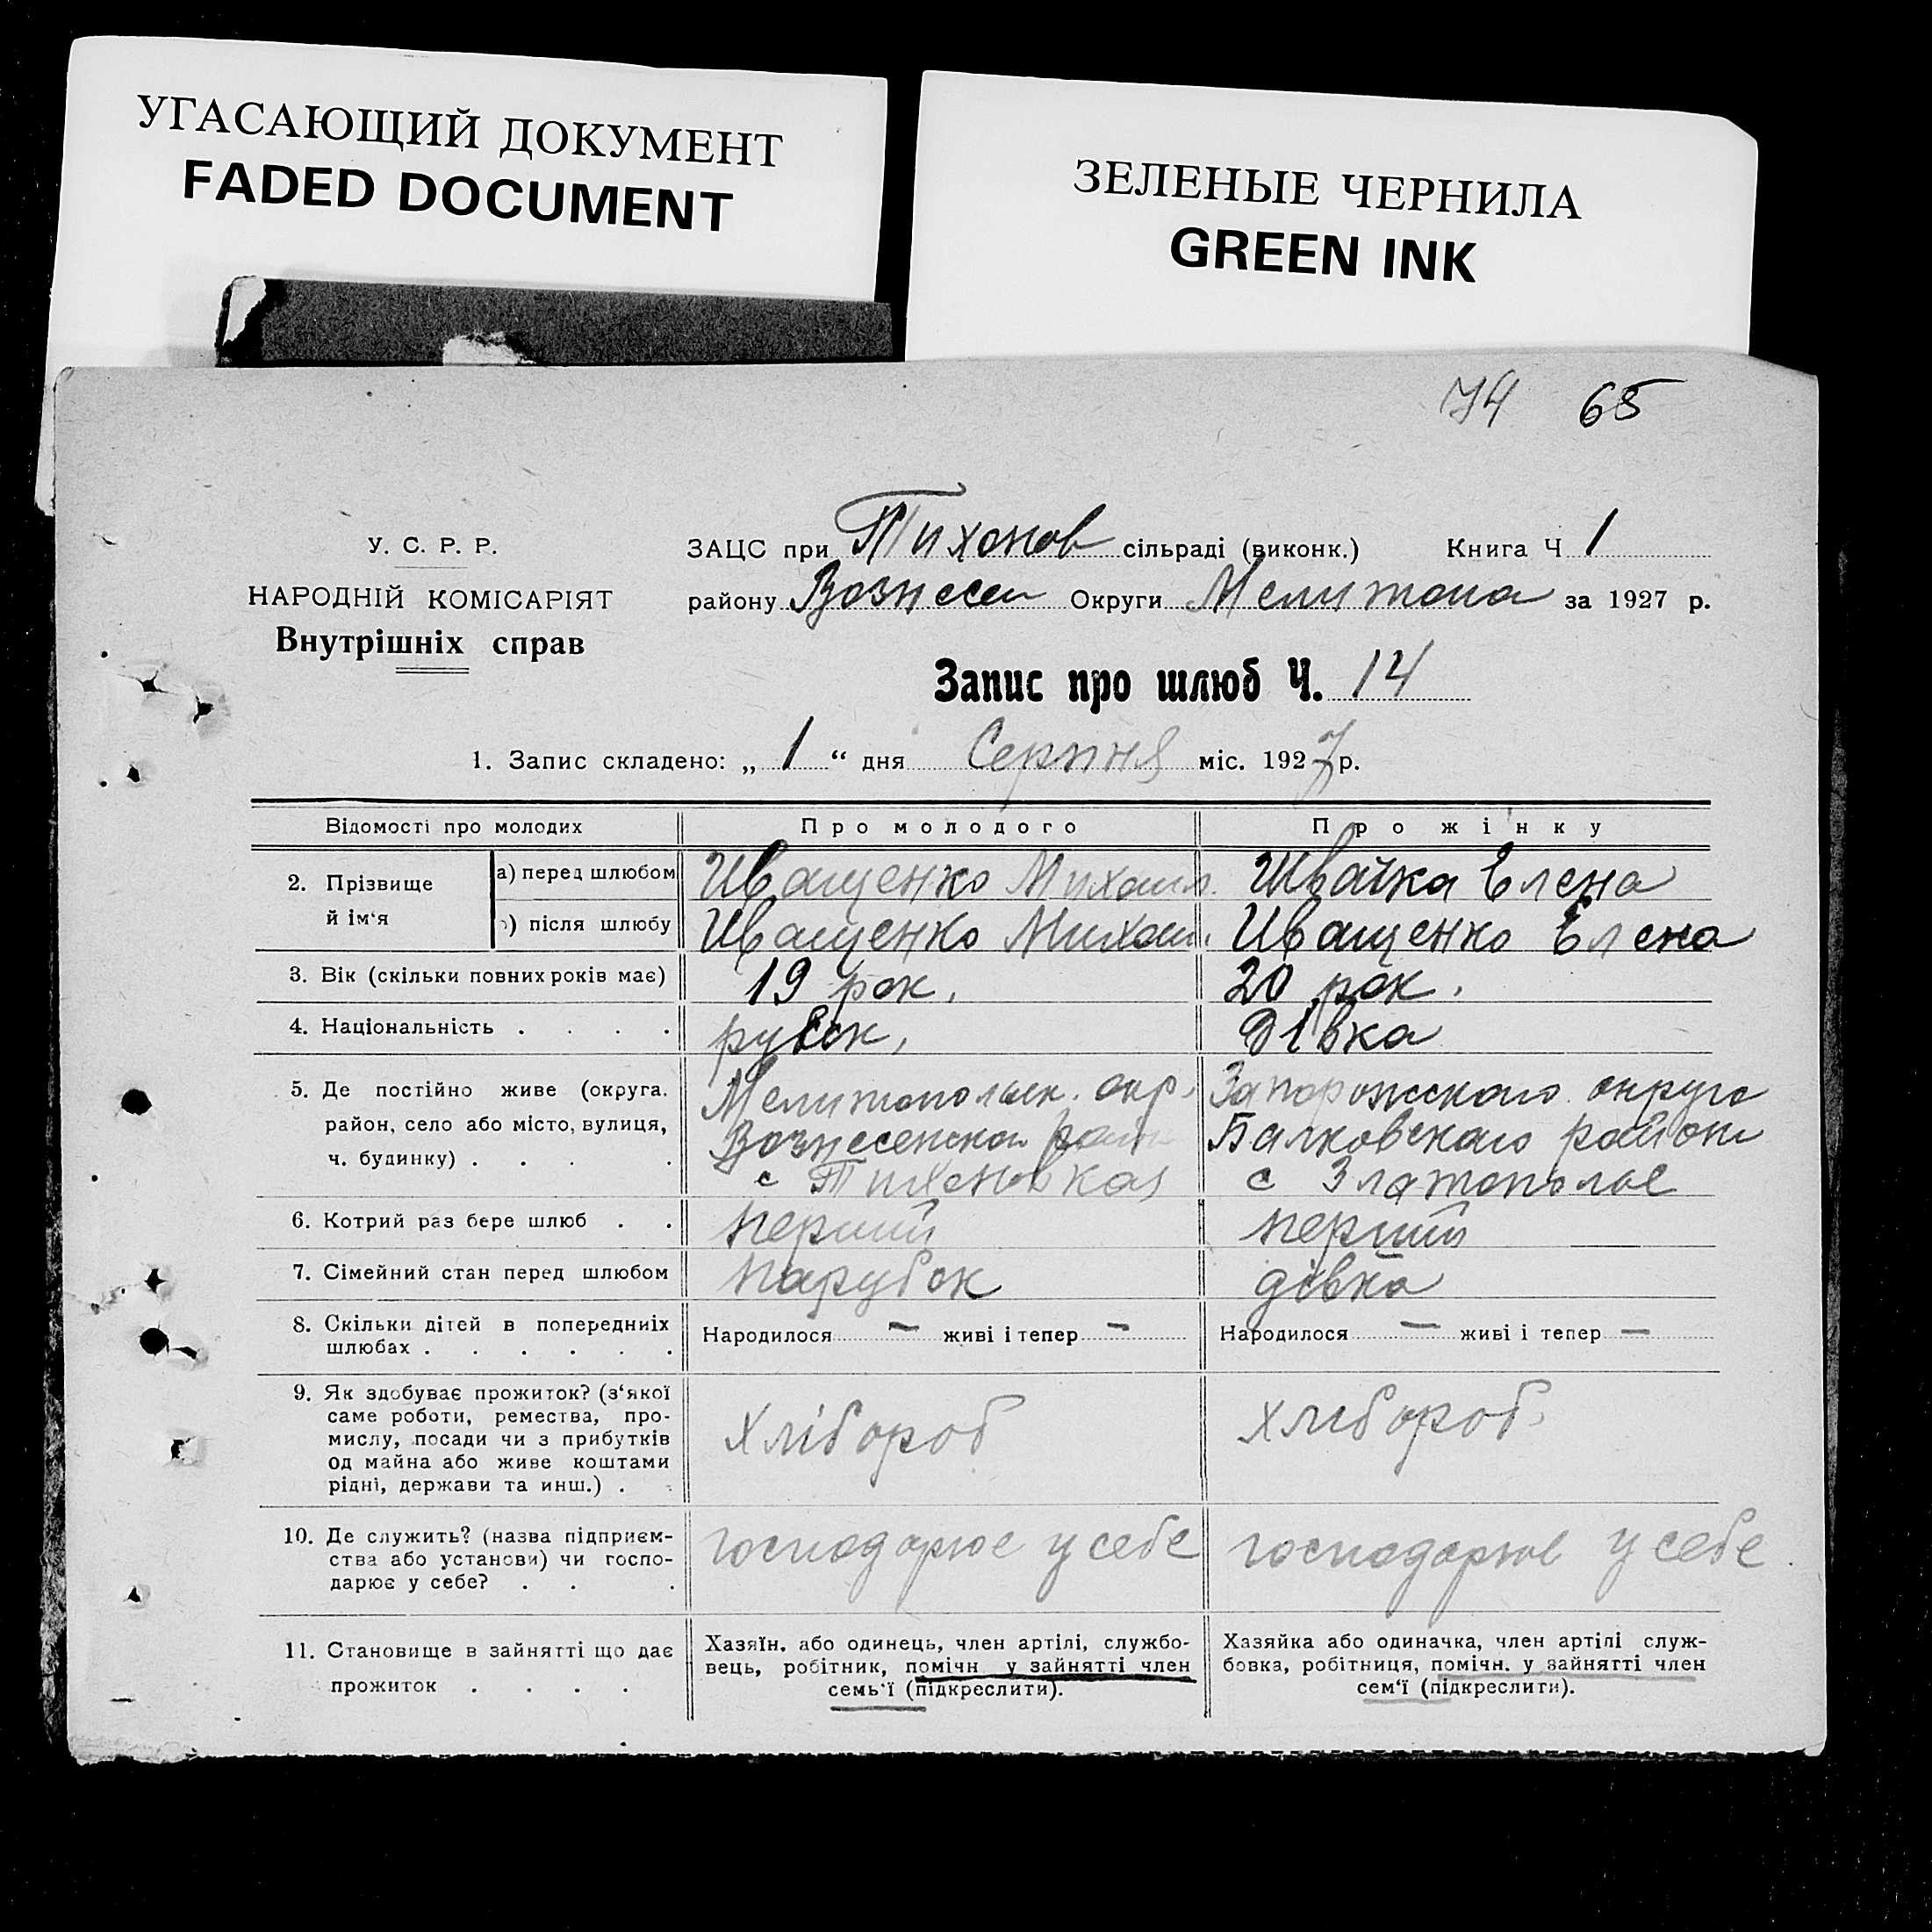 УГАСАЮЩИЙ ДОКУМЕНТ
FADED DOCUMENT
ЗЕЛЕНЫЕ ЧЕРНИЛА
GREEN INK
74 65
У. С. Р. Р.
НАРОДНІЙ КОМІСАРІЯТ
Внутрішніх справ
ЗАЦС при Тихонов сільраді (виконк.) Книга Ч 1
району Вознесен Округи Мелитопа за 1927 р.
Запис про шлюб Ч. 14
1. Запис складено: „ 1 “ дня Серпня міс. 1927 р.
Відомості про молодих Про молодого Про жінку
2. Прізвище й ім‘я
а) перед шлюбом Иващенко Михаил. Швайка Елена
) після шлюбу Иващенко Михаил. Иващенко Елена
3. Вік (скільки повних років має) 19 рок. 20 рок.
4. Національність . . . . руск, Дівка
5. Де постійно живе (округа.
район, село або місто, вулиця,
ч. будинку) . . . .
Мелитопольск. окр.
Вознесенской
с Тихоновкая
Запорожского округа
Балковского район
с Златополье
6. Котрий раз бере шлюб . . перший перший
7. Сімейний стан перед шлюбом парубок дівка
8. Скільки дітей в попередниіх
шлюбах . . . . . .
Народилося — живі і тепер —
Народилося — живі і тепер —
9. Як здобуває прожиток? (з‘якої
саме роботи, ремества, про-
мислу, посади чи з прибутків
од майна або живе коштами
рідні, держави та инш.) .
хлібороб
хлібороб.
10. Де служить? (назва підприєм-
ства або установи) чи госпо-
дарює у себе? . . .
господарює у себе
господарює у себе
11. Становище в зайнятті що дає
прожиток . . . .
Хазяїн. або одинець, член артілі, службо-
вець, робітник, помічн у зайнятті член
семь‘ї (підкреслити).
Хазяйка або одиначка, член артілі служ-
бовка, робітниця, помічн. у зайнятті член
сем‘ї (підкреслити).